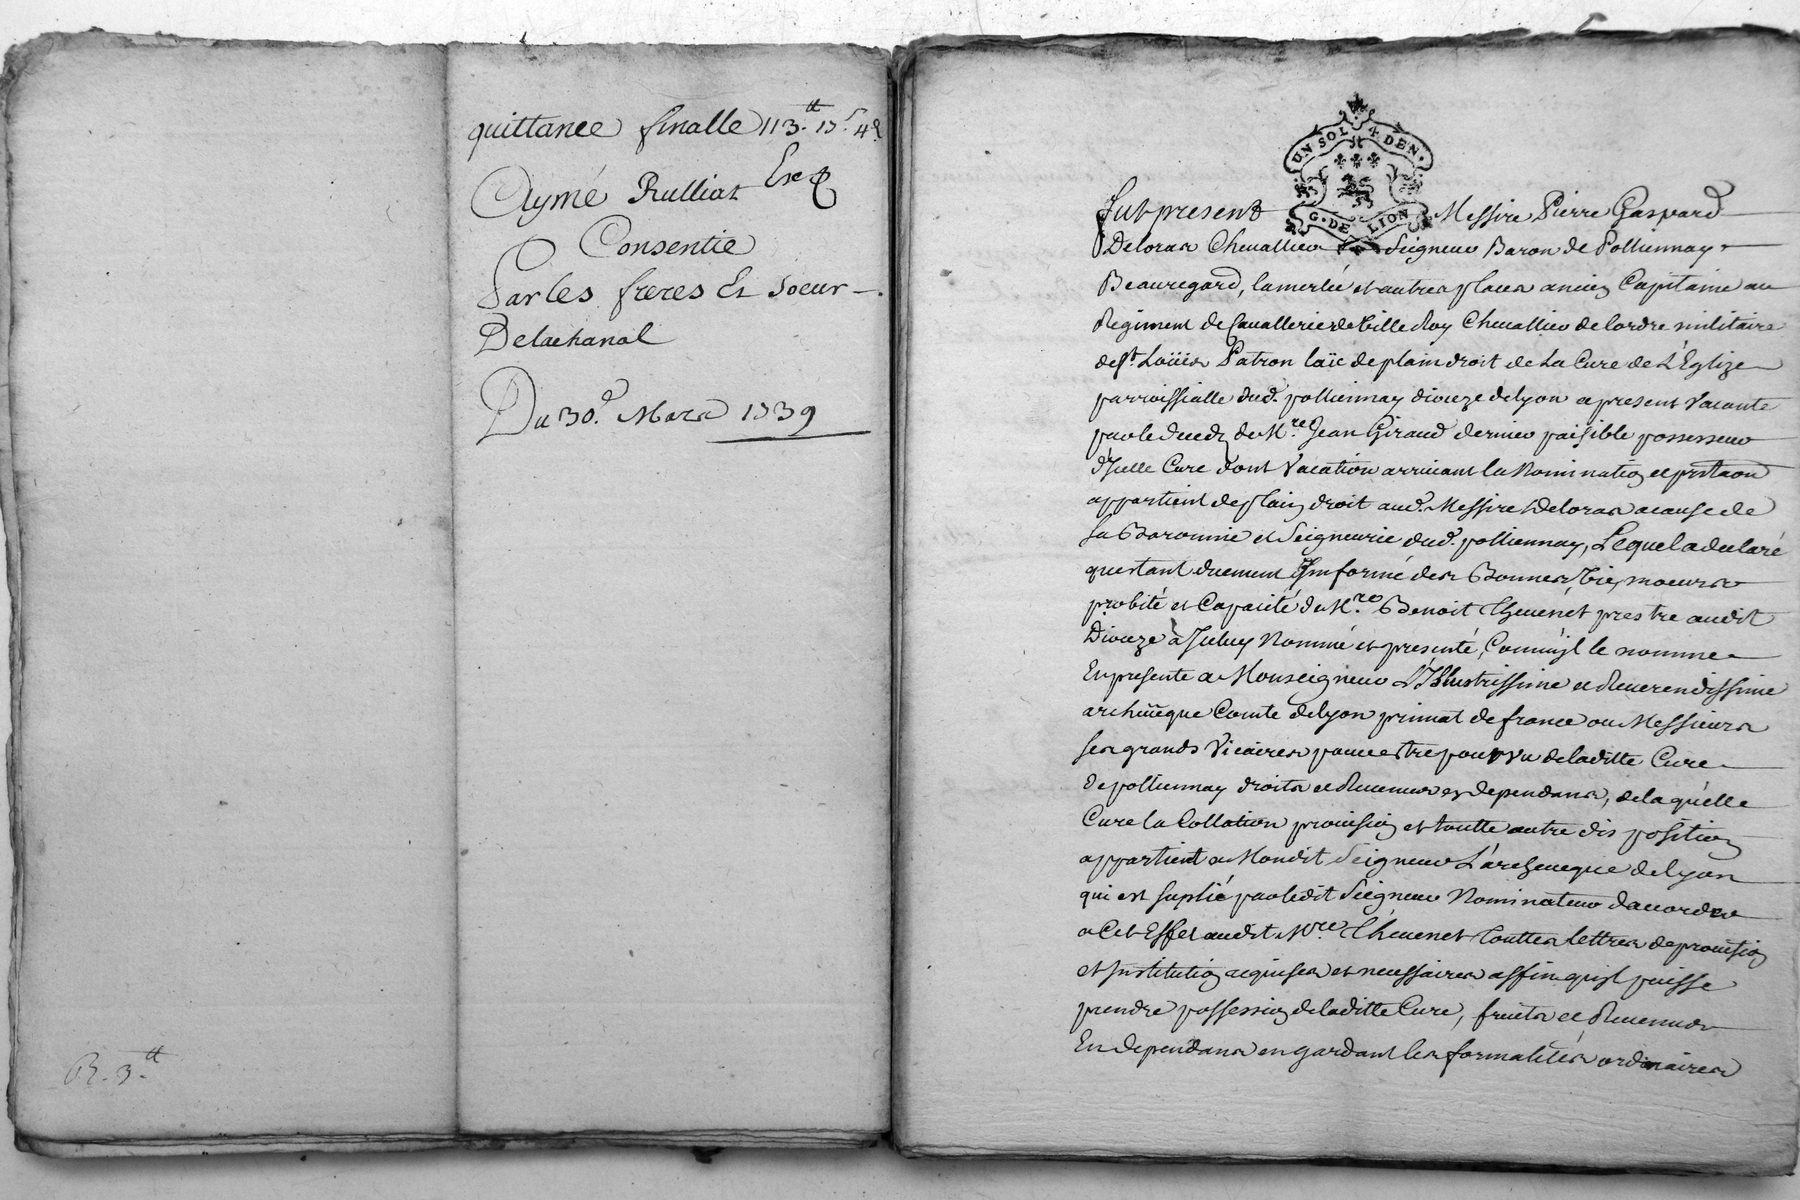 quittance finalle 113.tt 17.s 4.d
Aymé Rulliat
Consentie
Par les freres Et Soeur
Delachanal
Du 30.e Mars 1739
R. 3.tt
UN SOL 4 DEN.
G. DE LION
fut present Messire Pierre Gaspard
Deloras Cheuallier Seigneur Baron de Pollionnay
Beauregard, lamerlée et autres places ancien Capitaine au
Regiment de Cauallerie de Roy Cheuallier de lordre militaire
de st. Loüis Patron laïc de plain droit de La Cure de L'Eglize
parroissialle dud. pollionnay dioceze de lyon apresent Vacante
par le deceds de Mre. Jean Giraud dernier paisible possesseur
d'Jcelle Cure dont Vacation arriuant la Nomination et pntaon
appartient de plain droit aud. Messire Deloras acause de
sa Baronnie et Seigneurie dud. pollionnay, Lequel a declaré
questant duement Jnformé des Bonnes Vie, moeurs
probité et Capacité de Mre. Benoit Theuenet prestre audit
Dioceze a Jceluy Nommé et presenté, Comm'jl le nomme
Et presente a Monseigneur L'Jllustrissime et Reuerendissime
archeuêque Comte de lyon primat de france ou Messieurs
ses grands Vicaires pour estre pourvu de laditte Cure
de pollionnay droits et Reuenus en dependans, de laquelle
Cure la Collation prouision et toutte autre disposition
appartient a Mondit Seigneur L'archeueque de lyon
qui est suplié par ledit Seigneur Nominateur daccorder
a Cet Effet audit Mre. Theuenet Touttes lettres de prouision
et Jnstitution requises et necessaires affin qujl puisse
prendre possession de laditte Cure, fruits et Reuenus
En dependans en gardant les formalités ordinaires